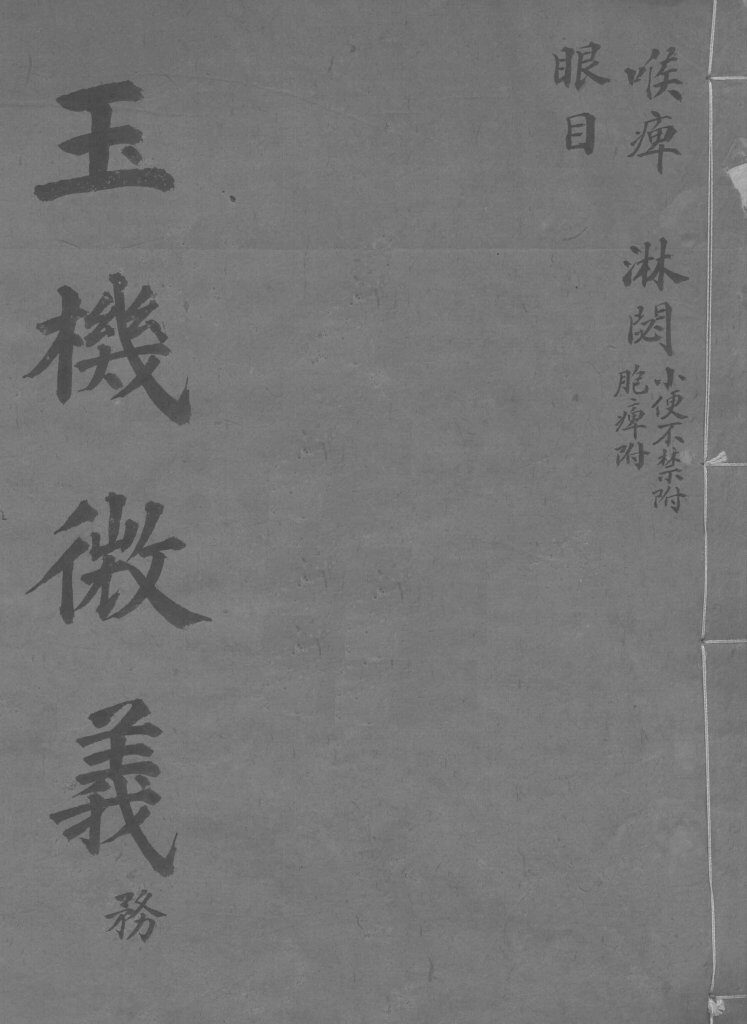 喉痺 淋閟
小便不禁附
胞痺附
眼目
玉機微義 務